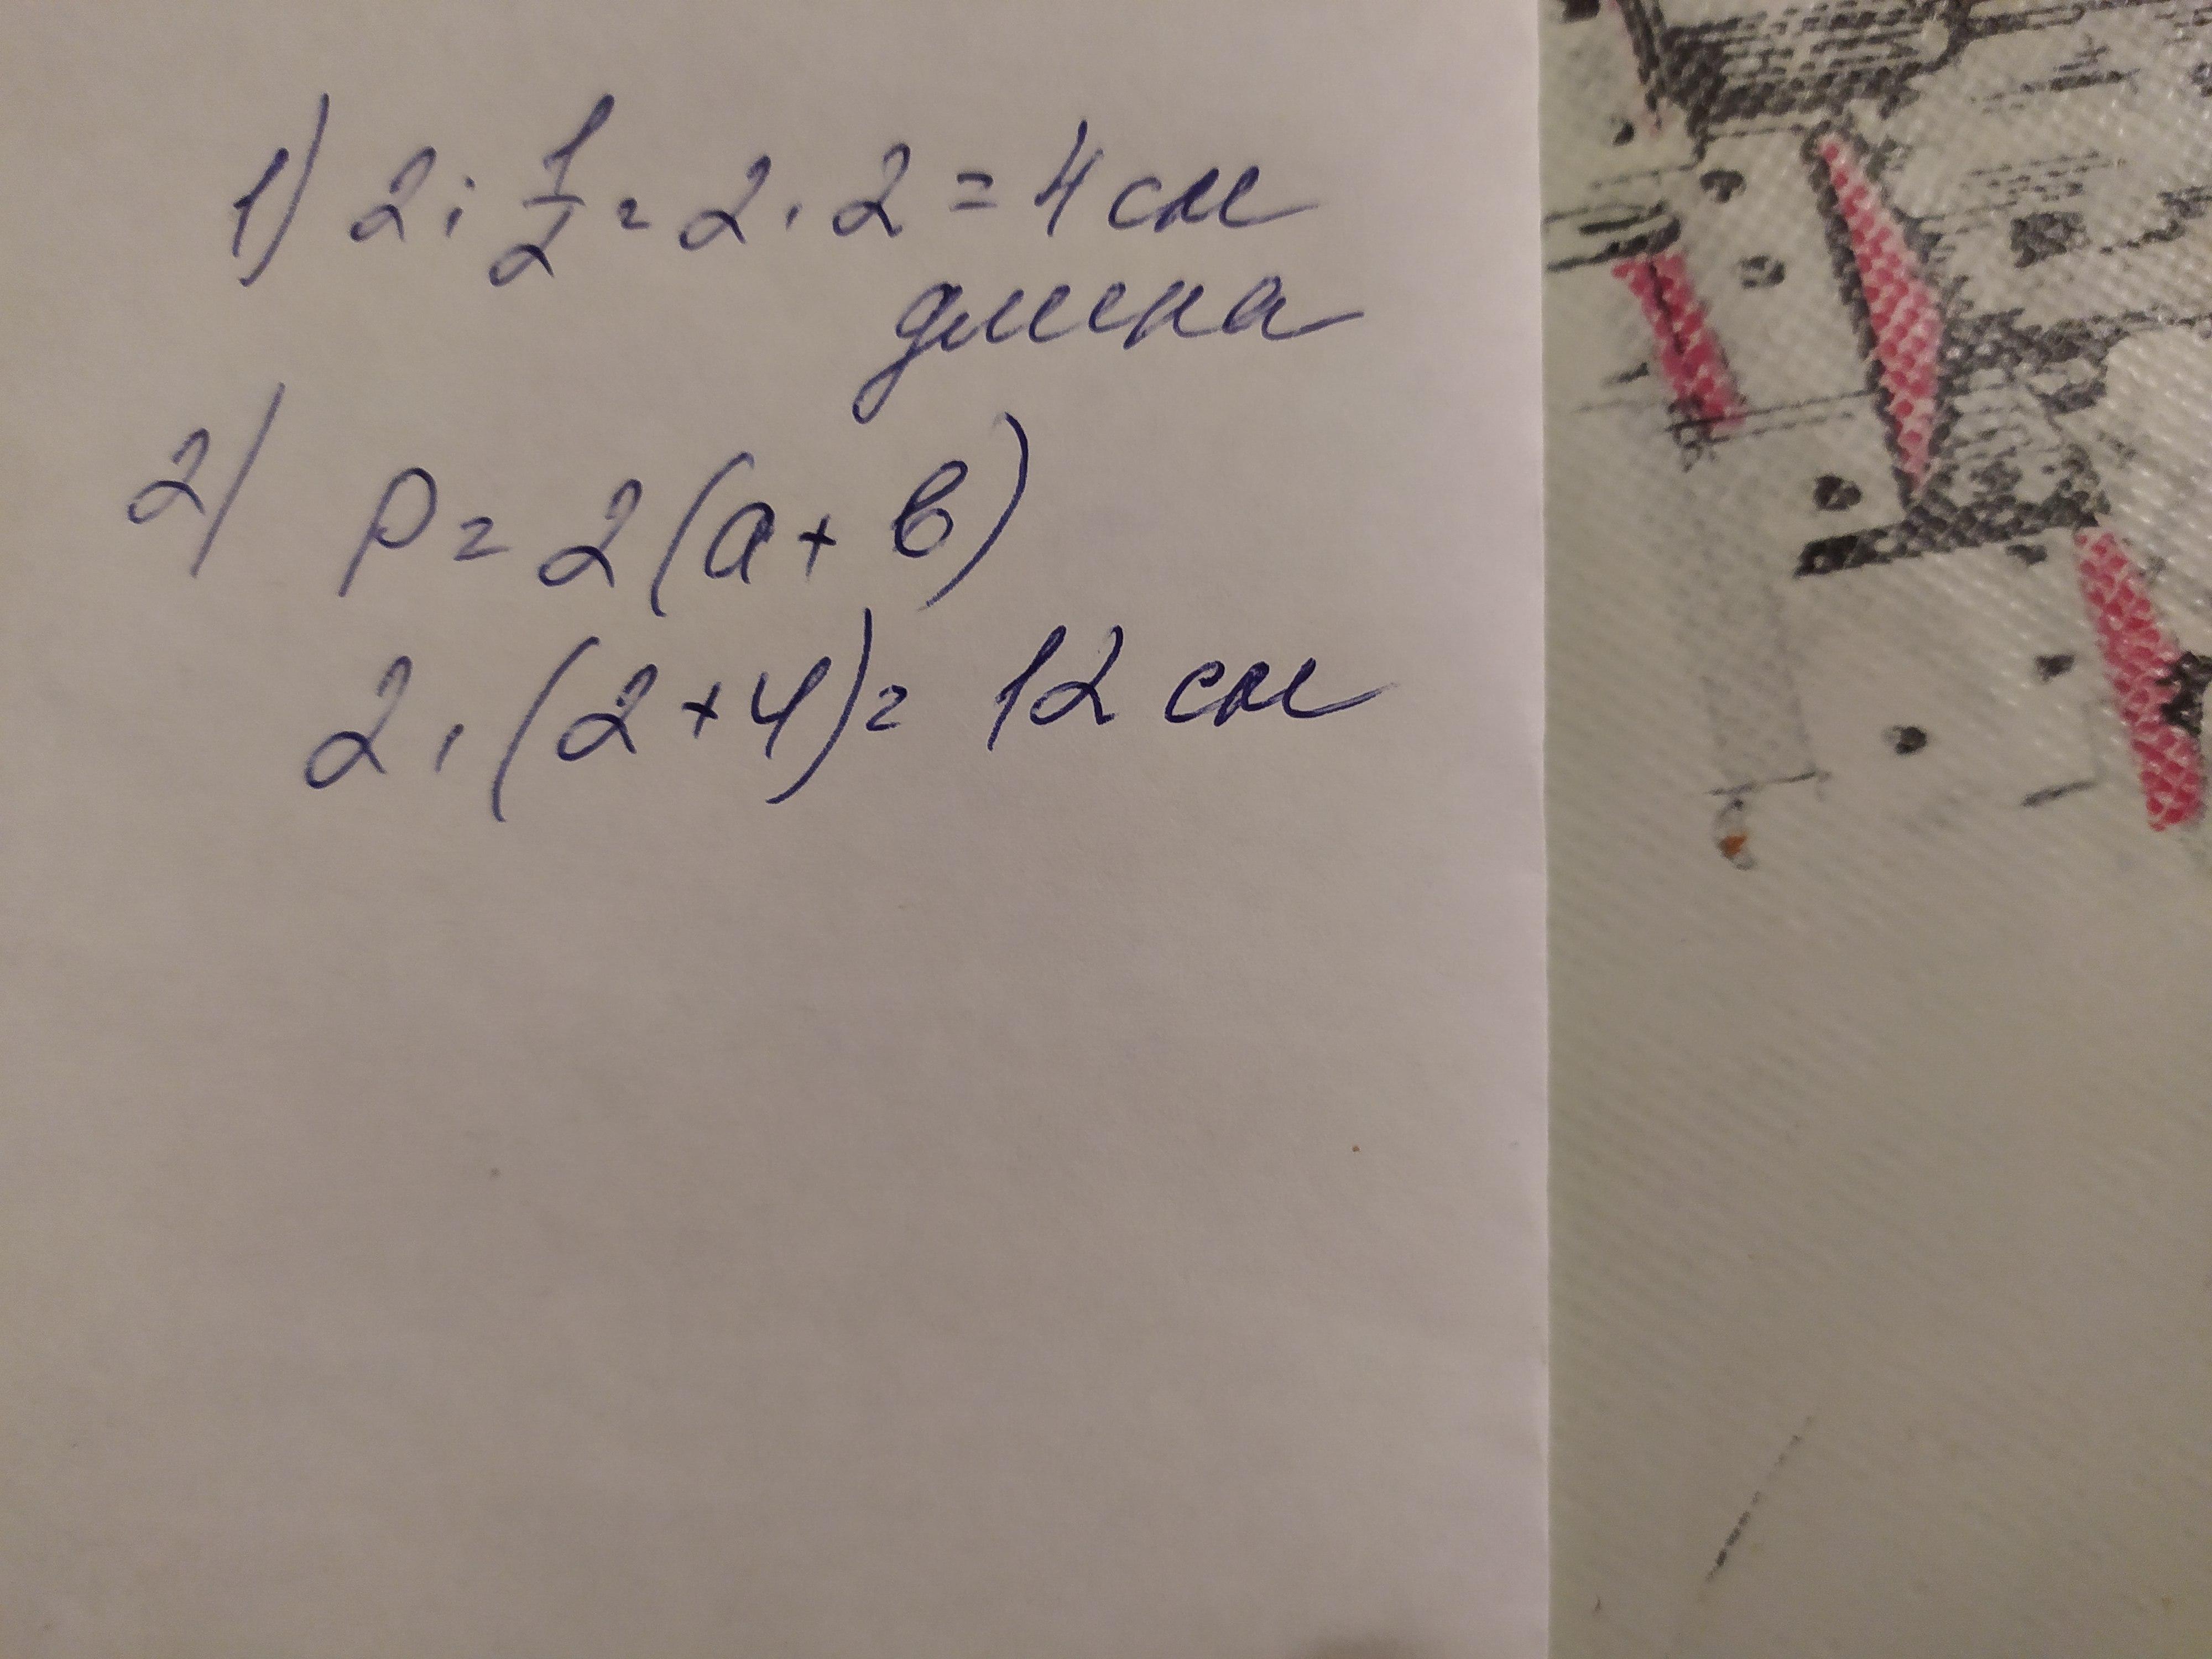 1) 2 : 1/2 = 2 · 2 = 4 см
длина
2) P = 2(a + b)
2 · (2 + 4) = 12 см